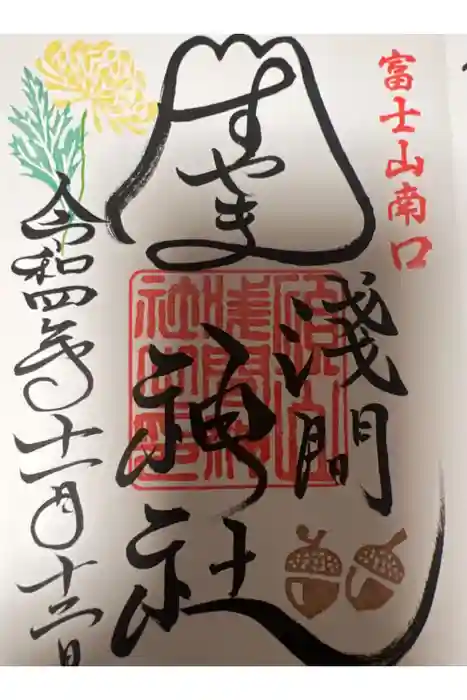 富士山南口
すやま
淺間
神社
令和四年十一月十三日